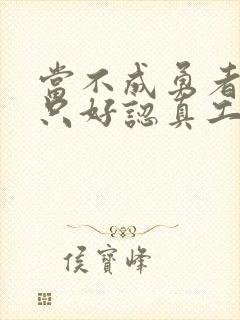 當不成勇者
只好認真工
侯寶峰